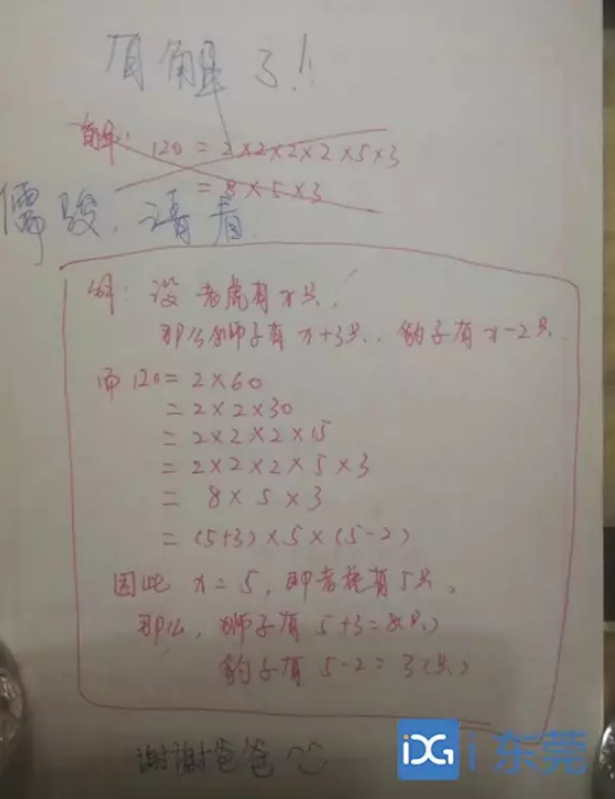 有解了!!
解: 120 = 2×2×2×2×5×3
= 8×5×3
儒骏,请看
解: 设老虎有x只,
那么狮子有x+3只, 豹子有x-2只
而120=2×60
=2×2×30
=2×2×2×15
=2×2×2×5×3
= 8×5×3
=(5+3)×5×(5-2)
因此 x=5, 即老虎有5只,
那么, 狮子有5+3=8(只)
豹子有5-2=3(只)
谢谢爸爸
iDG i东莞